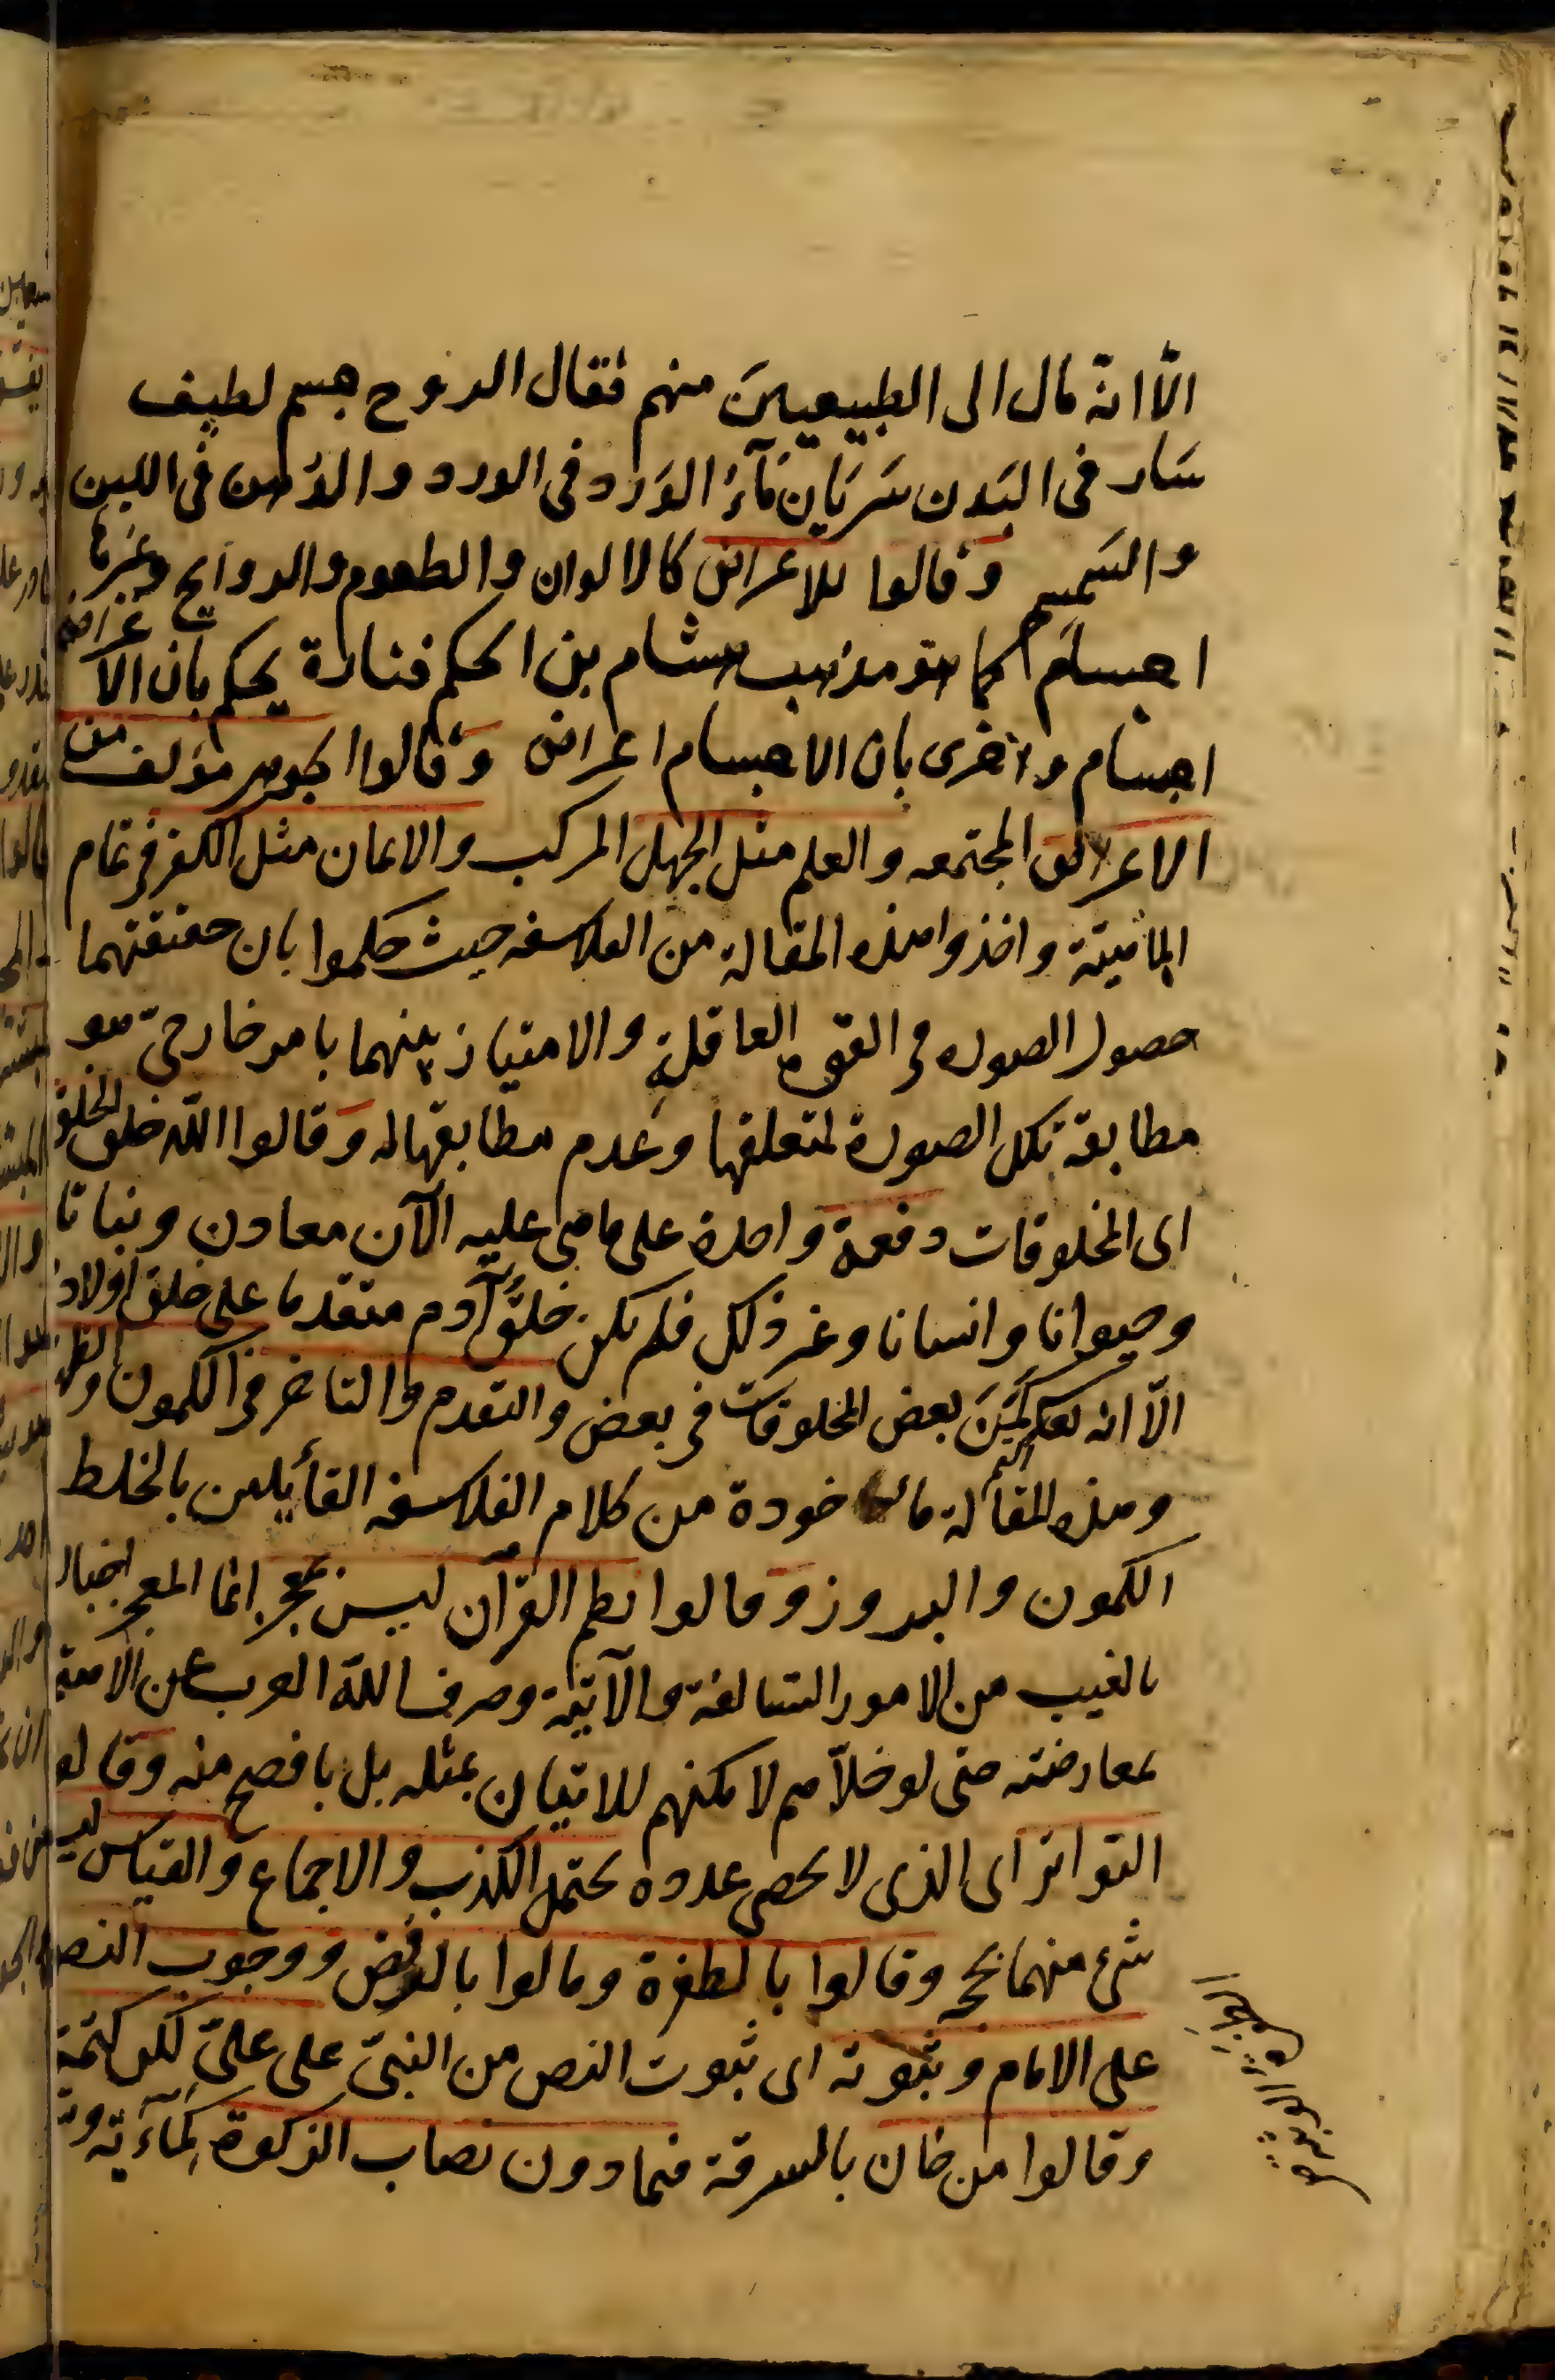 الّا انه مال الى الطبيعيينَ منهم فقال الروح جسم لطيف
سَار فى البَدن سَريَان مَآءُ الوَرد فى الورد والدُهن فى اللبن
والسَمسم وقالوا للاعراض كالالوان والطعوم والروايح وغيرها
اجسامٌ كما هو مذهب هشام بن الحكم فتارة يحكم بان الاعراض
اجسام واخرى بان الاجسام اعراض وقالوا الجوهر مؤلف من
الاعراض المجتمعه والعلم مثل الجهل المركب والايمان مثل الكفر فى تمام
الماهيّة واخذوا هذه المقالة من الفلاسفه حيث حكموا بان حقيقتهما
حصول الصوره فى القوه العاقلةِ والامتياز بينهما بامر خارجىّ هو
مطابقة تلك الصورة لمتعلقها وعدم مطابقتها له وقالوا اللّه خلق الخلق
اى المخلوقات دفعة واحدة على ما هى عليه الآن معادن ونباتا
وحيوانا وانسانا وغير ذلك فلم يكن خلقُ آدم متقدما على خلق اولاده
الّا انه تعكمَّنَ بعض المخلوقات فى بعض والتقدم والتاخر فى الكمون والظهور
وهذه المقالة ماخودة من كلام الفلاسفه القائلين بالخلط
الكمون والبروز وقالوا نظم القرآن ليس بمعجز انما المعجز اخباره
بالغيب من الامور السّالفة والآتية وصرف اللّه العرب عن الاهتمام
بمعارضته حتى لو خلّاهم لامكنهم للاتيان بمثله بل بافصح منه وقالو
التواتر اى الذى لا يحصى عدده يحتمل الكذب والاجماع والقياس ليس
شئ منهما بحجه وقالوا بالطفرة ومالوا بالرفض ووجوب النص
على الامام وثبوته اى ثبوت النص من النبىّ على علىّ لكن كتمه
وقالوا من خان بالسرقة فيما دون نصاب الزكوة كمآءَيه و